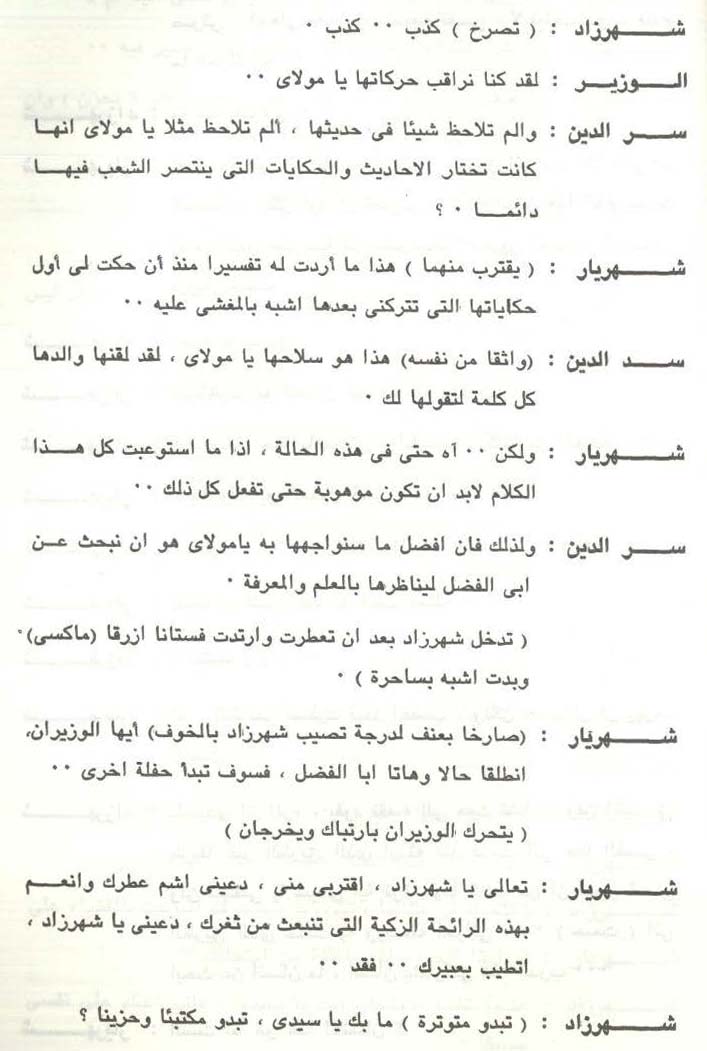 شهرزاد : ( تصرخ ) كذب ٠٠ كذب ٠
الوزير : لقد كنا نراقب حركاتها يا مولاى ٠٠
سر الدين : والم تلاحظ شيئا فى حديثها ، ألم تلاحظ مثلا يا مولاى انها
كانت تختار الاحاديث والحكايات التى ينتصر الشعب فيها
دائما ٠ ؟
شهريار : ( يقترب منهما ) هذا ما أردت له تفسيرا منذ أن حكت لى أول
حكاياتها التى تتركنى بعدها اشبه بالمغشى عليه ٠٠
سد الدين : (واثقا من نفسه) هذا هو سلاحها يا مولاى ، لقد لقنها والدها
كل كلمة لتقولها لك ٠
شهريار : ولكن ٠٠ آه حتى فى هذه الحالة ، اذا ما استوعبت كل هذا
الكلام لابد ان تكون موهوبة حتى تفعل كل ذلك ٠٠
سر الدين : ولذلك فان افضل ما سنواجهها به يامولاى هو ان نبحث عن
ابى الفضل ليناظرها بالعلم والمعرفة ٠
( تدخل شهرزاد بعد ان تعطرت وارتدت فستانا ازرقا (ماكسى)٠
وبدت اشبه بساحرة ) ٠
شهريار : (صارخا بعنف لدرجة تصيب شهرزاد بالخوف) أيها الوزيران،
انطلقا حالا وهاتا ابا الفضل ، فسوف تبدأ حفلة اخرى ٠٠
( يتحرك الوزيران بارتباك ويخرجان )
شهريار : تعالى يا شهرزاد ، اقتربى منى ، دعينى اشم عطرك وانعم
بهذه الرائحة الزكية التى تنبعث من ثغرك ، دعينى يا شهرزاد ،
اتطيب بعبيرك ٠٠ فقد ٠٠
شهرزاد : ( تبدو متوترة ) ما بك يا سيدى ، تبدو مكتبئا وحزينا ؟